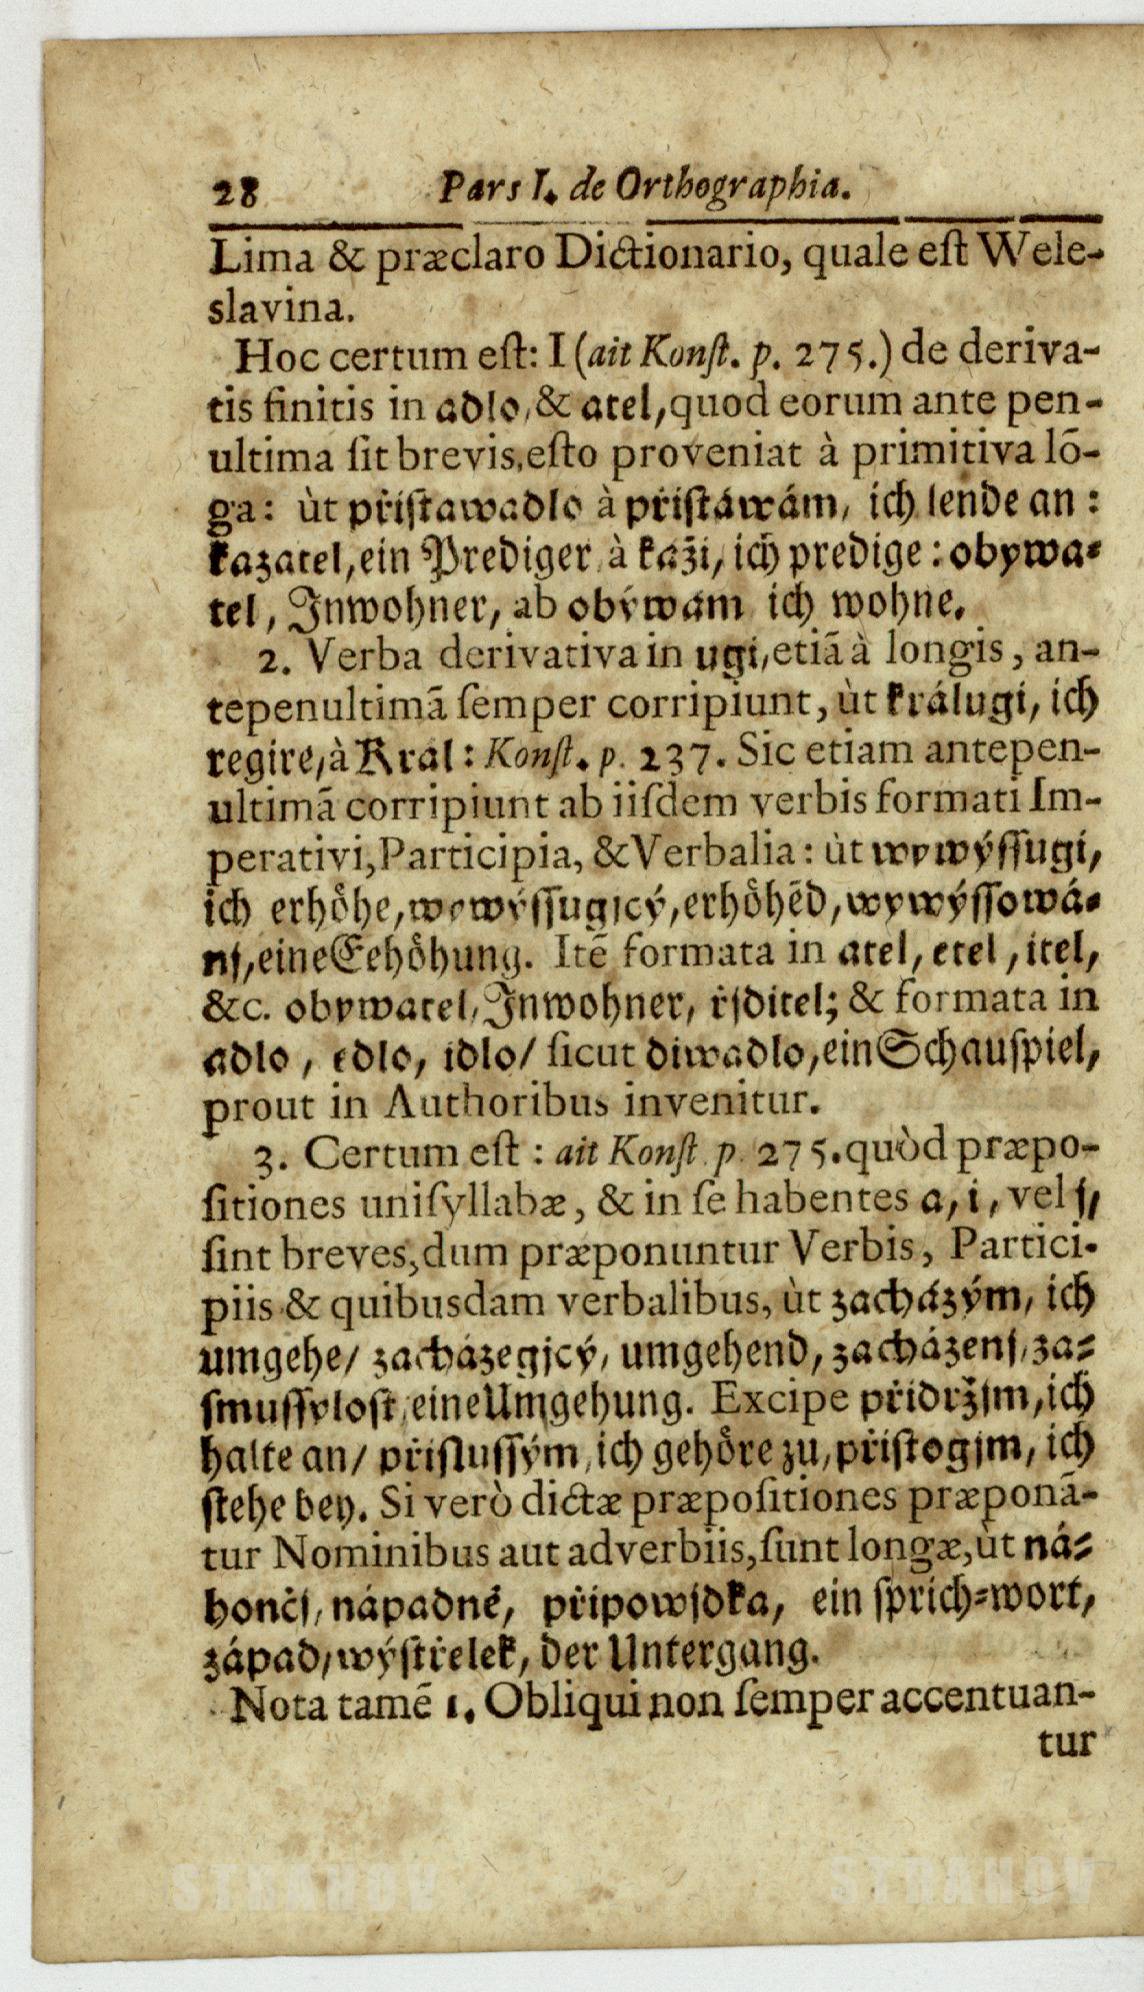 28 Pars I. de Orthographia.
Lima & præclaro Dictionario, quale eſt Wele-
slavina.
Hoc certum eſt: I (ait Konſt. p. 275.) de deriva-
tis finitis in adlo, & atel, quod eorum ante pen-
ultima ſit brevis, eſto proveniat à primitiva lō-
ga: ùt přiſtawadlo à přiſtáwám, ich lende an:
kazatel, ein Prediger, à kaži, ich predige: obywa-
tel, Jnwohner, ab obýwám ich wohne.
2. Verba derivativa in ugi, etiã à longis, an-
tepenultimã ſemper corripiunt, ùt králugi, ich
regire, à Kral: Konſt. p. 237. Sic etiam antepen-
ultimã corripiunt ab iiſdem verbis formati Im-
perativi, Participia, & Verbalia: ùt wywýſſugi,
ich erhoͤhe, wywýſſugjcý, erhoͤhẽd, wywýſſowá-
nj, eine Eehoͤhung. Itē formata in atel, etel, itel,
&c. obywatel, Jnwohner, řjditel; & formata in
adlo, edlo, idlo/ ſicut diwadlo, ein Schauſpiel,
prout in Authoribus invenitur.
3. Certum eſt: ait Konſt p. 275. quòd præpo-
ſitiones uniſyllabæ, & in ſe habentes a, i, vel j,
ſint breves, dum præponuntur Verbis, Partici-
piis & quibusdam verbalibus, ùt zacházým, ich
umgehe/ zacházegjcý, umgehend, zacházenj, za-
ſmuſſyloſt, eine Umgehung. Excipe přidržjm, ich
halte an/ přiſluſſým, ich gehoͤre zu, přiſtogjm, ich
ſtehe bey. Si verò dictæ præpoſitiones præponã-
tur Nominibus aut adverbiis, ſunt longæ, ùt ná-
hončj, nápadně, připowjdka, ein ſprich-wort,
západ, wýſtřelek, der Untergang.
Nota tamē 1. Obliqui non ſemper accentuan-
tur
STRAHOV STRAHOV